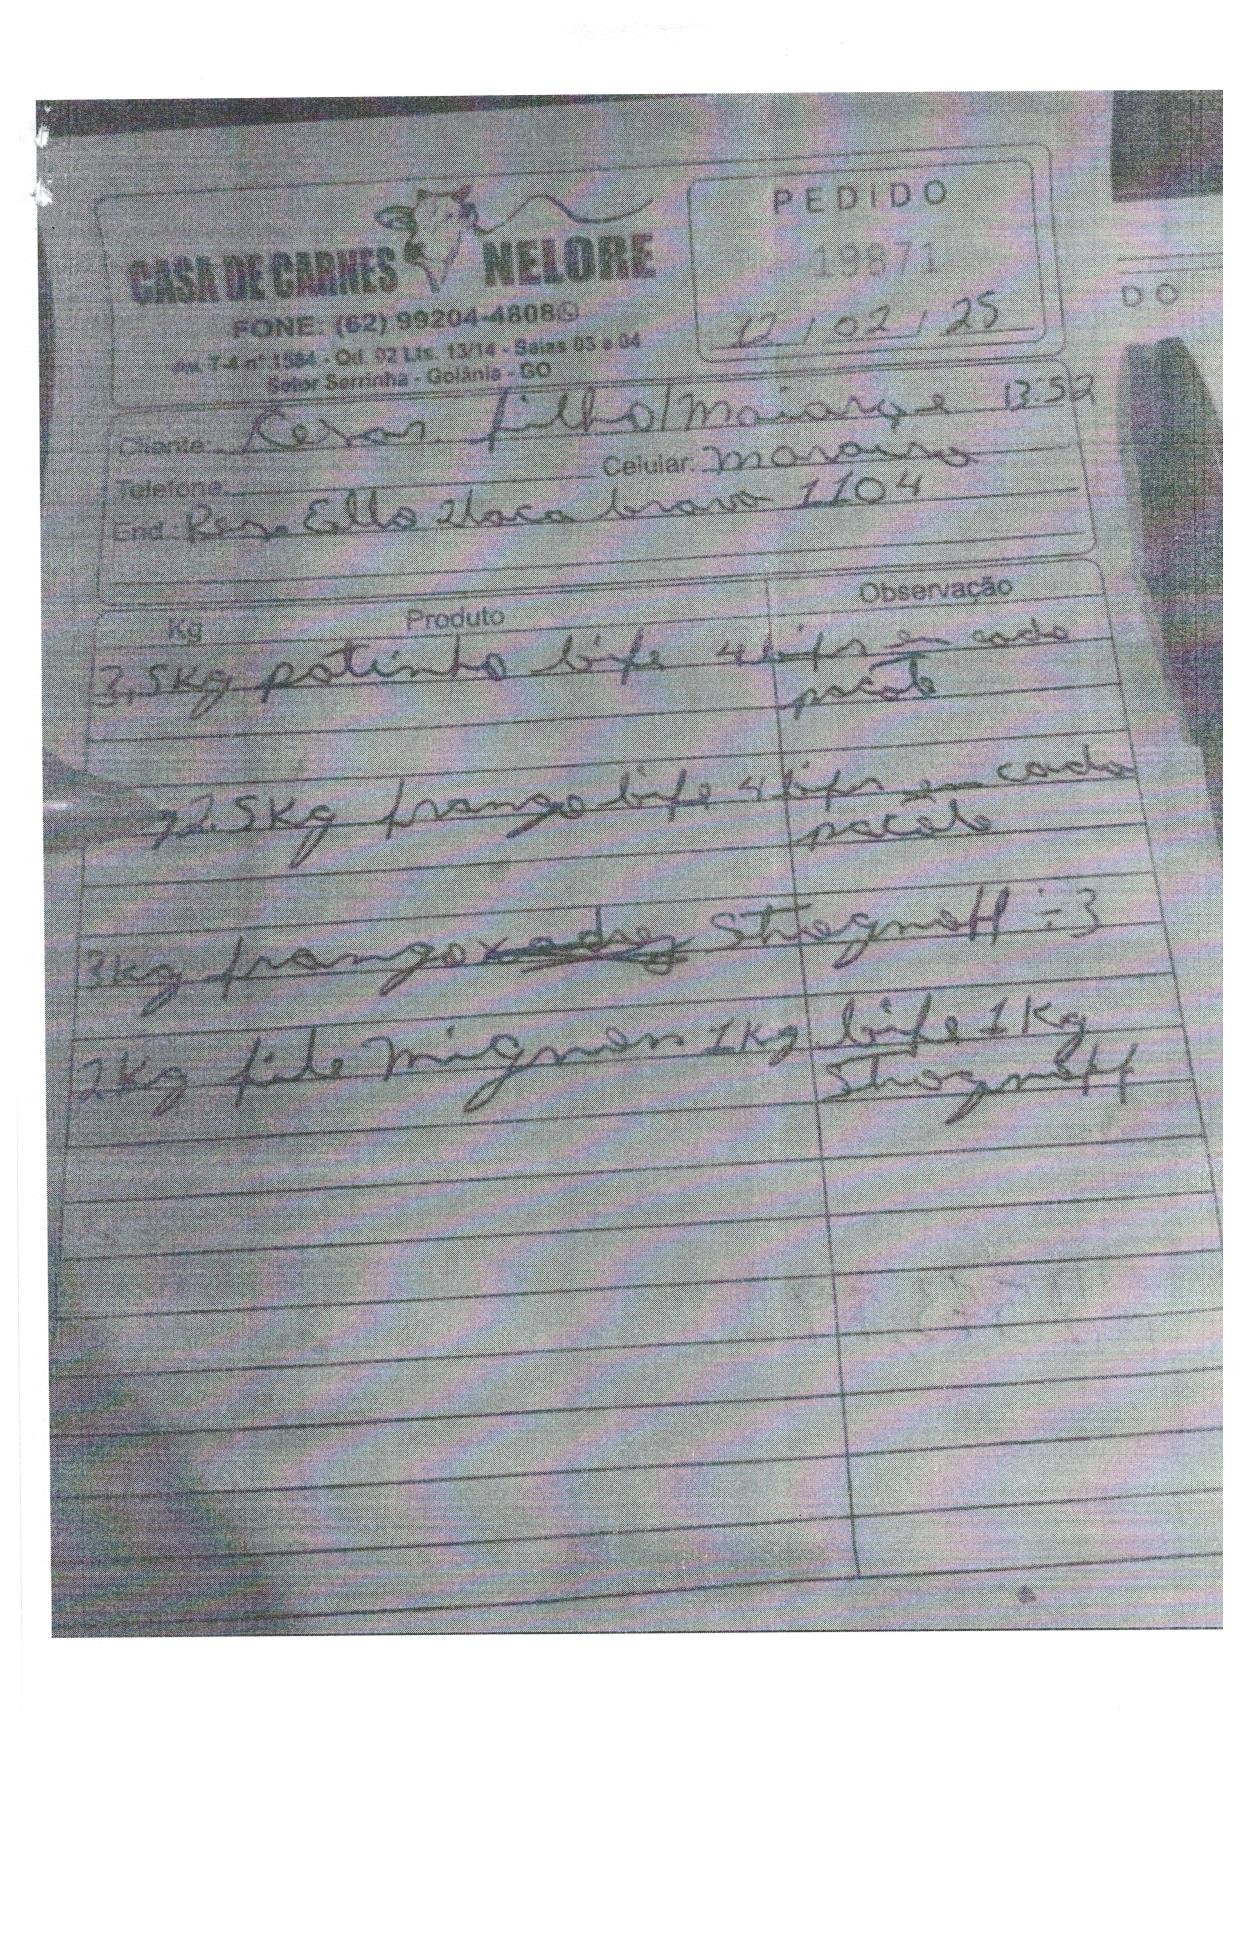 PEDIDO
CASA DE CARNES NELORE
19871
FONE: (62) 99204-4808
12 / 02 / 25
Av. T-4 nº 1584 - Qd. 02 Lts. 13/14 - Salas 03 e 04
Setor Serrinha - Goiânia - GO
DO
Cliente: Cesar filho/ 13:52
Telefone: Celular:
End.: Res. Ello vaca brava 1104
Kg Produto Observação
3,5Kg patinho bife 4 bifs em cada
pacote
2.5Kg frango bife 4 bifs em cada
pacote
3kg frango xadrez Strognoff ÷3
2Kg file mignon 1kg bife 1Kg
Strognoff